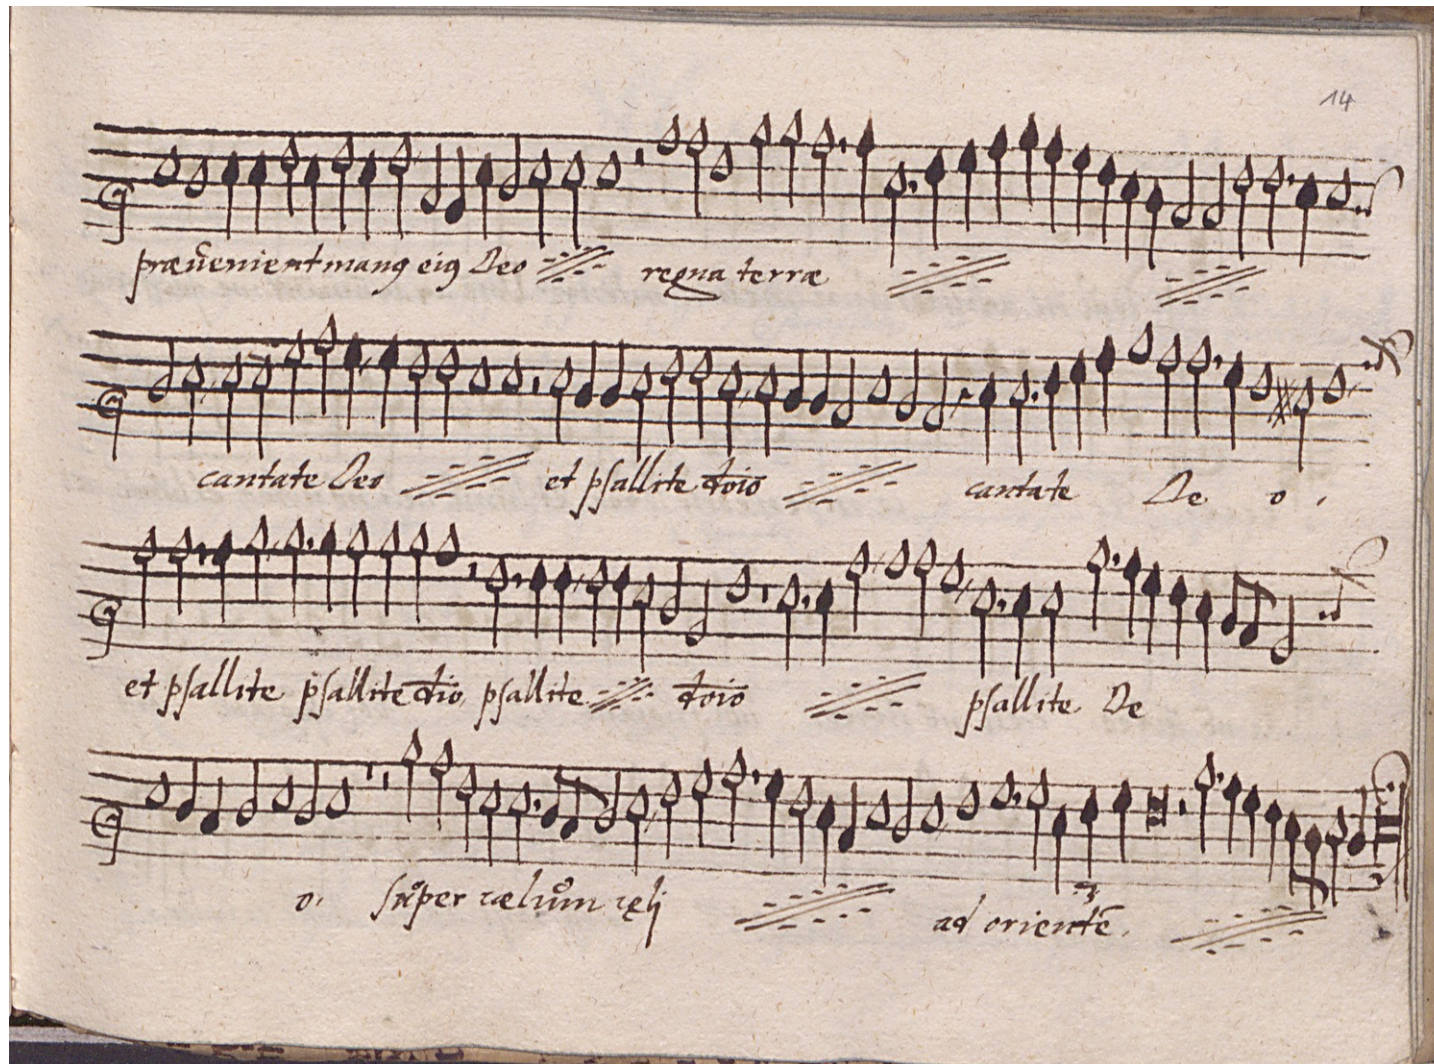 14
prævenient manꝯ eiꝯ Deo regna terræ
cantate Deo et psallite dn̄o cantate De o.
et psallite psallite dn̄o psallite dn̄o psallite De
o. super cælum cęli ad orientē.